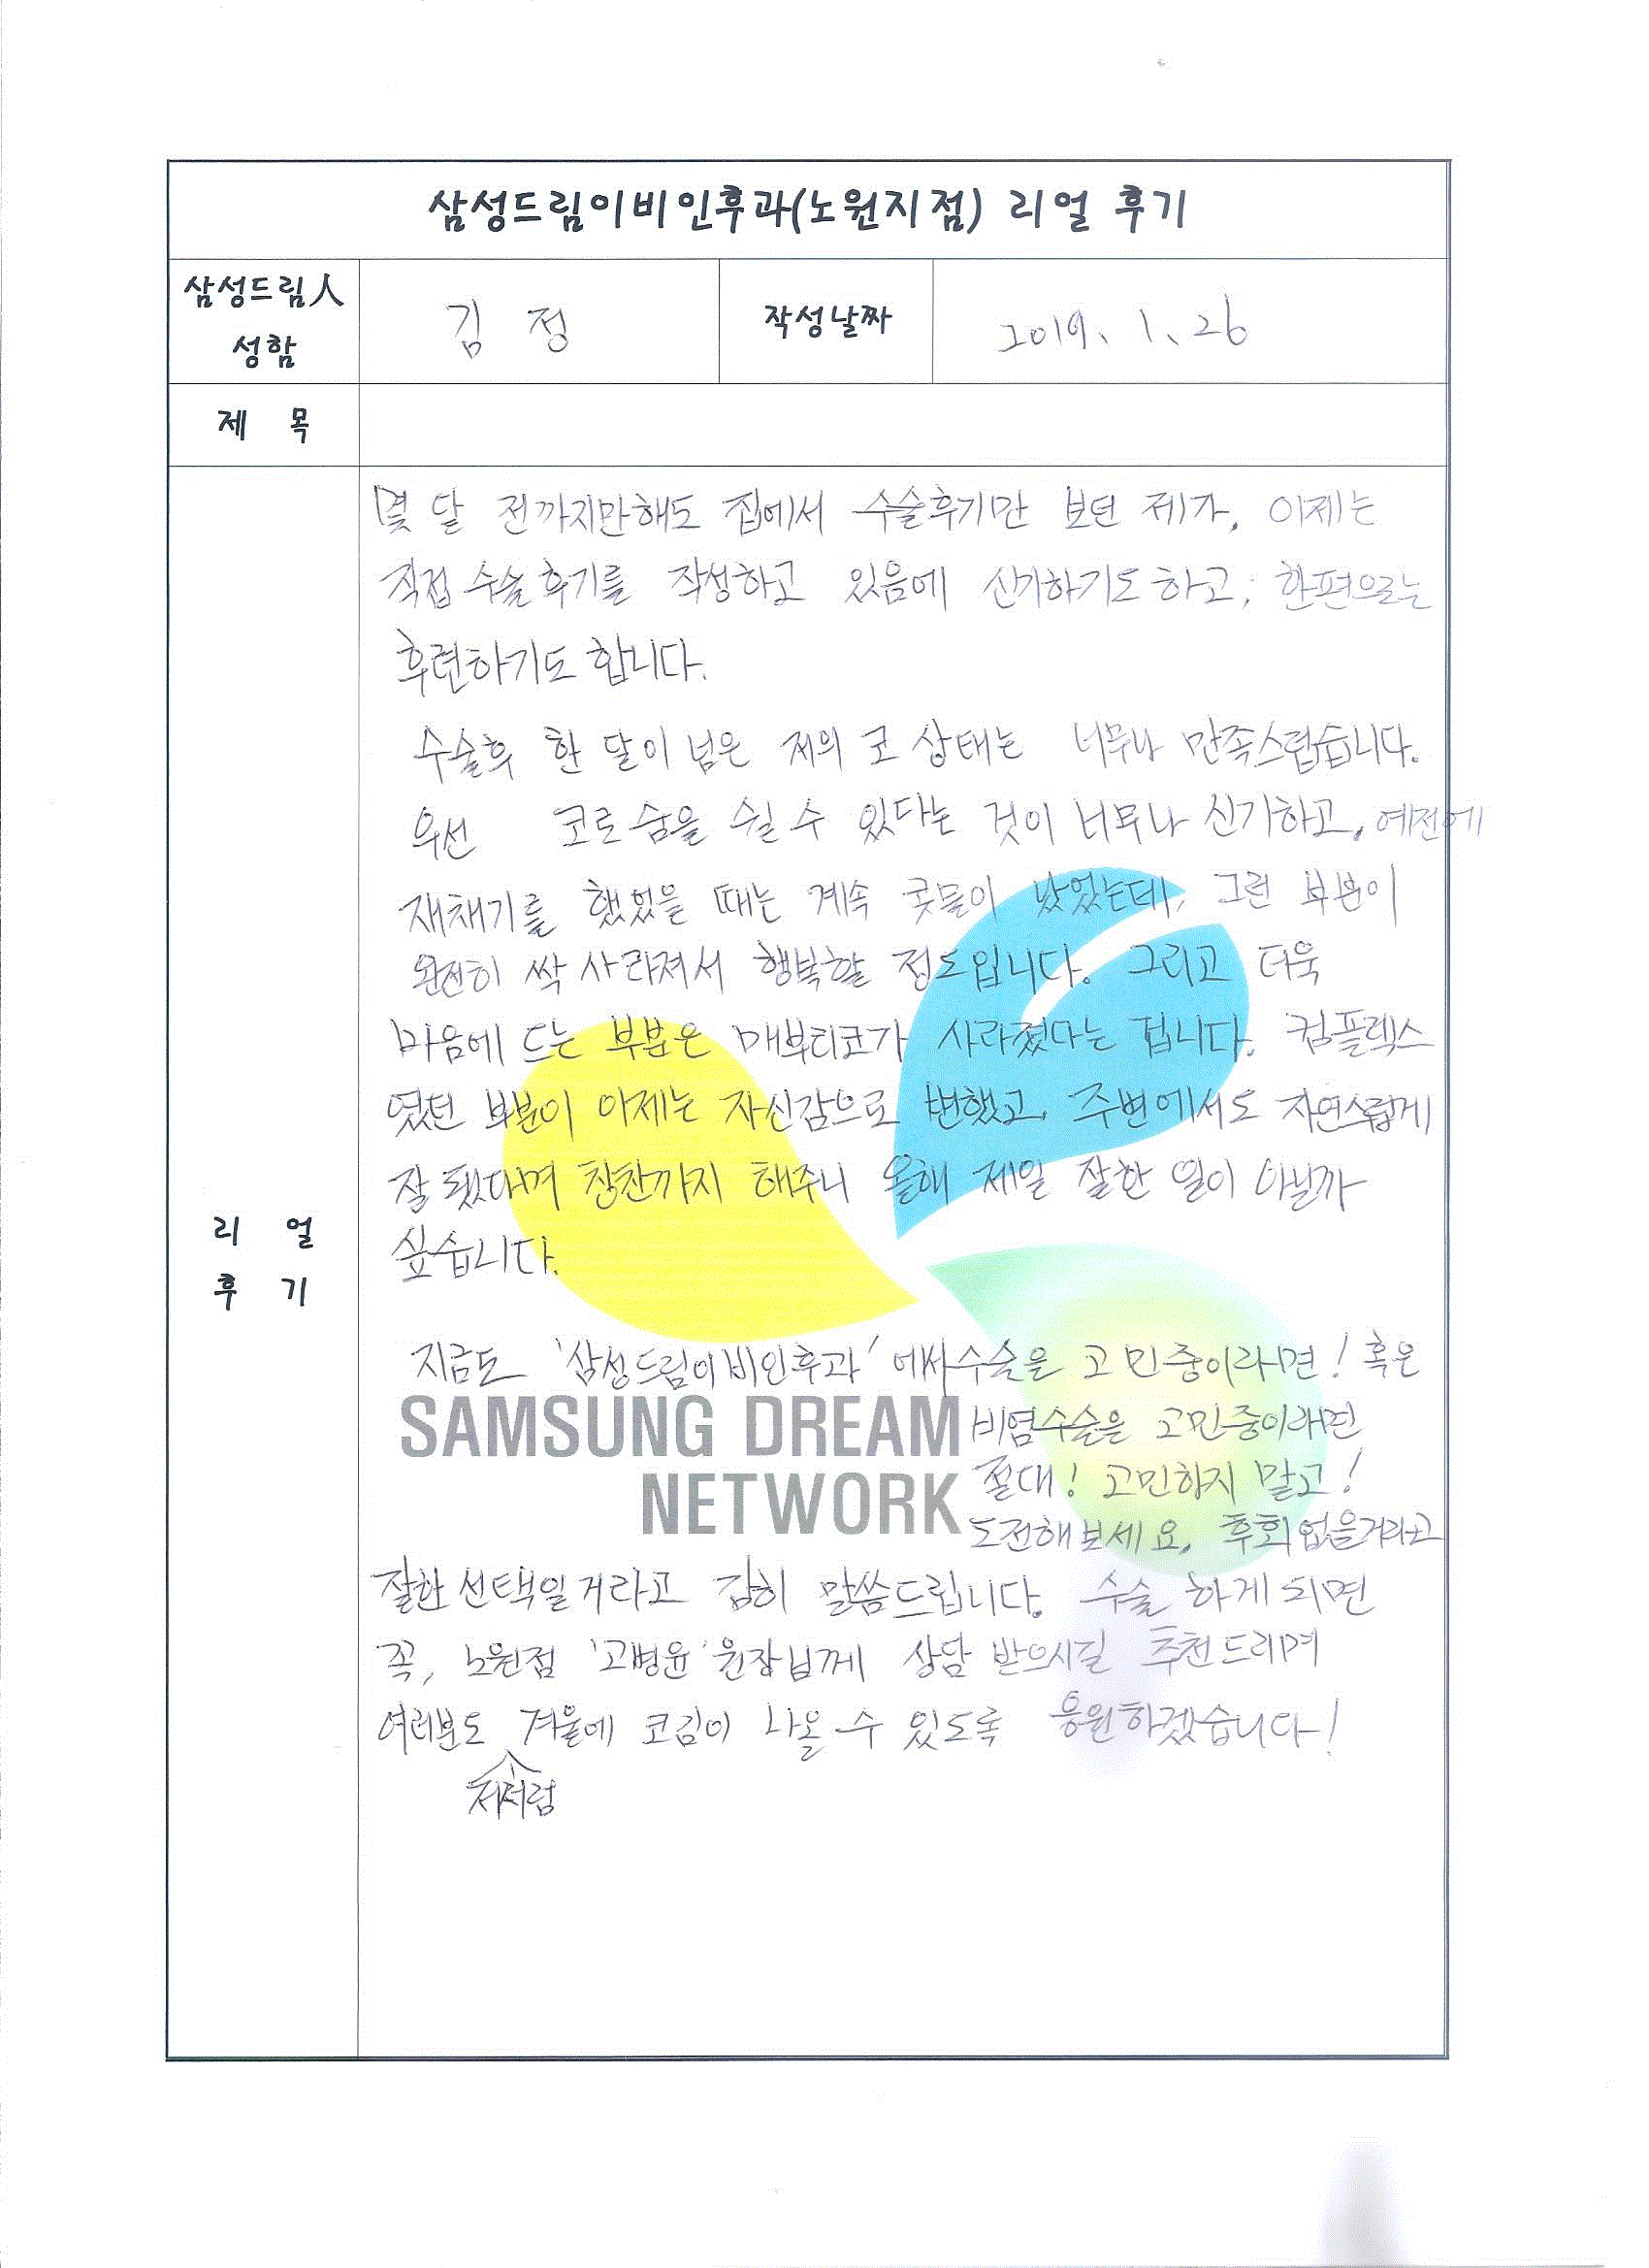 삼성드림이비인후과(노원지점) 리얼 후기
삼성드림人
성함
김 정
작성날짜
2019. 1. 26
제 목
리 얼
후 기
몇 달 전까지만해도 집에서 수술후기만 보던 제가, 이제는
직접 수술후기를 작성하고 있음에 신기하기도 하고, 한편으로는
후련하기도 합니다.
수술후 한 달이 넘은 저의 코 상태는 너무나 만족스럽습니다.
우선 코로 숨을 쉴 수 있다는 것이 너무나 신기하고, 예전에
재채기를 했었을 때는 계속 콧물이 났었는데, 그런 부분이
완전히 싹 사라져서 행복할 정도입니다. 그리고 더욱
마음에 드는 부분은 매부리코가 사라졌다는 점니다. 컴플렉스
였던 부분이 이제는 자신감으로 변했고, 주변에서도 자연스럽게
잘 됐다며 칭찬까지 해주니 올해 제일 잘한 일이 아닐까
싶습니다.
지금도 '삼성드림이비인후과'에서 수술을 고민중이라면! 혹은
비염수술을 고민중이라면
절대! 고민하지 말고!
도전해보세요. 후회없을거라고
잘한 선택일거라고 감히 말씀드립니다. 수술 하게되면
꼭, 노원점 '고병윤' 원장님께 상담 받으시길 추천드리며
여러분도 겨울에 코김이 나올 수 있도록 응원하겠습니다!
저처럼
SAMSUNG DREAM
NETWORK